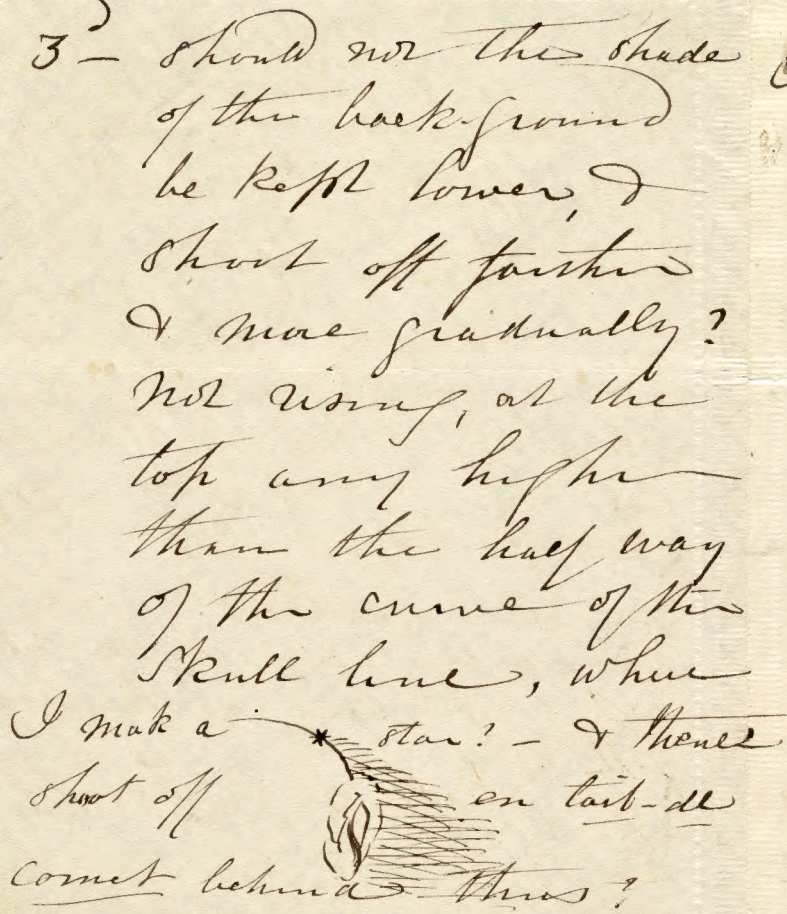 3 — should not the shade
of the back-ground
be kept lower, &
shoot off further
& more gradually?
not rising, at the
top any higher
than the half way
of the curve of the
skull line, where
I make a * star? — & thence
shoot off en tail-de
comet behind thus?